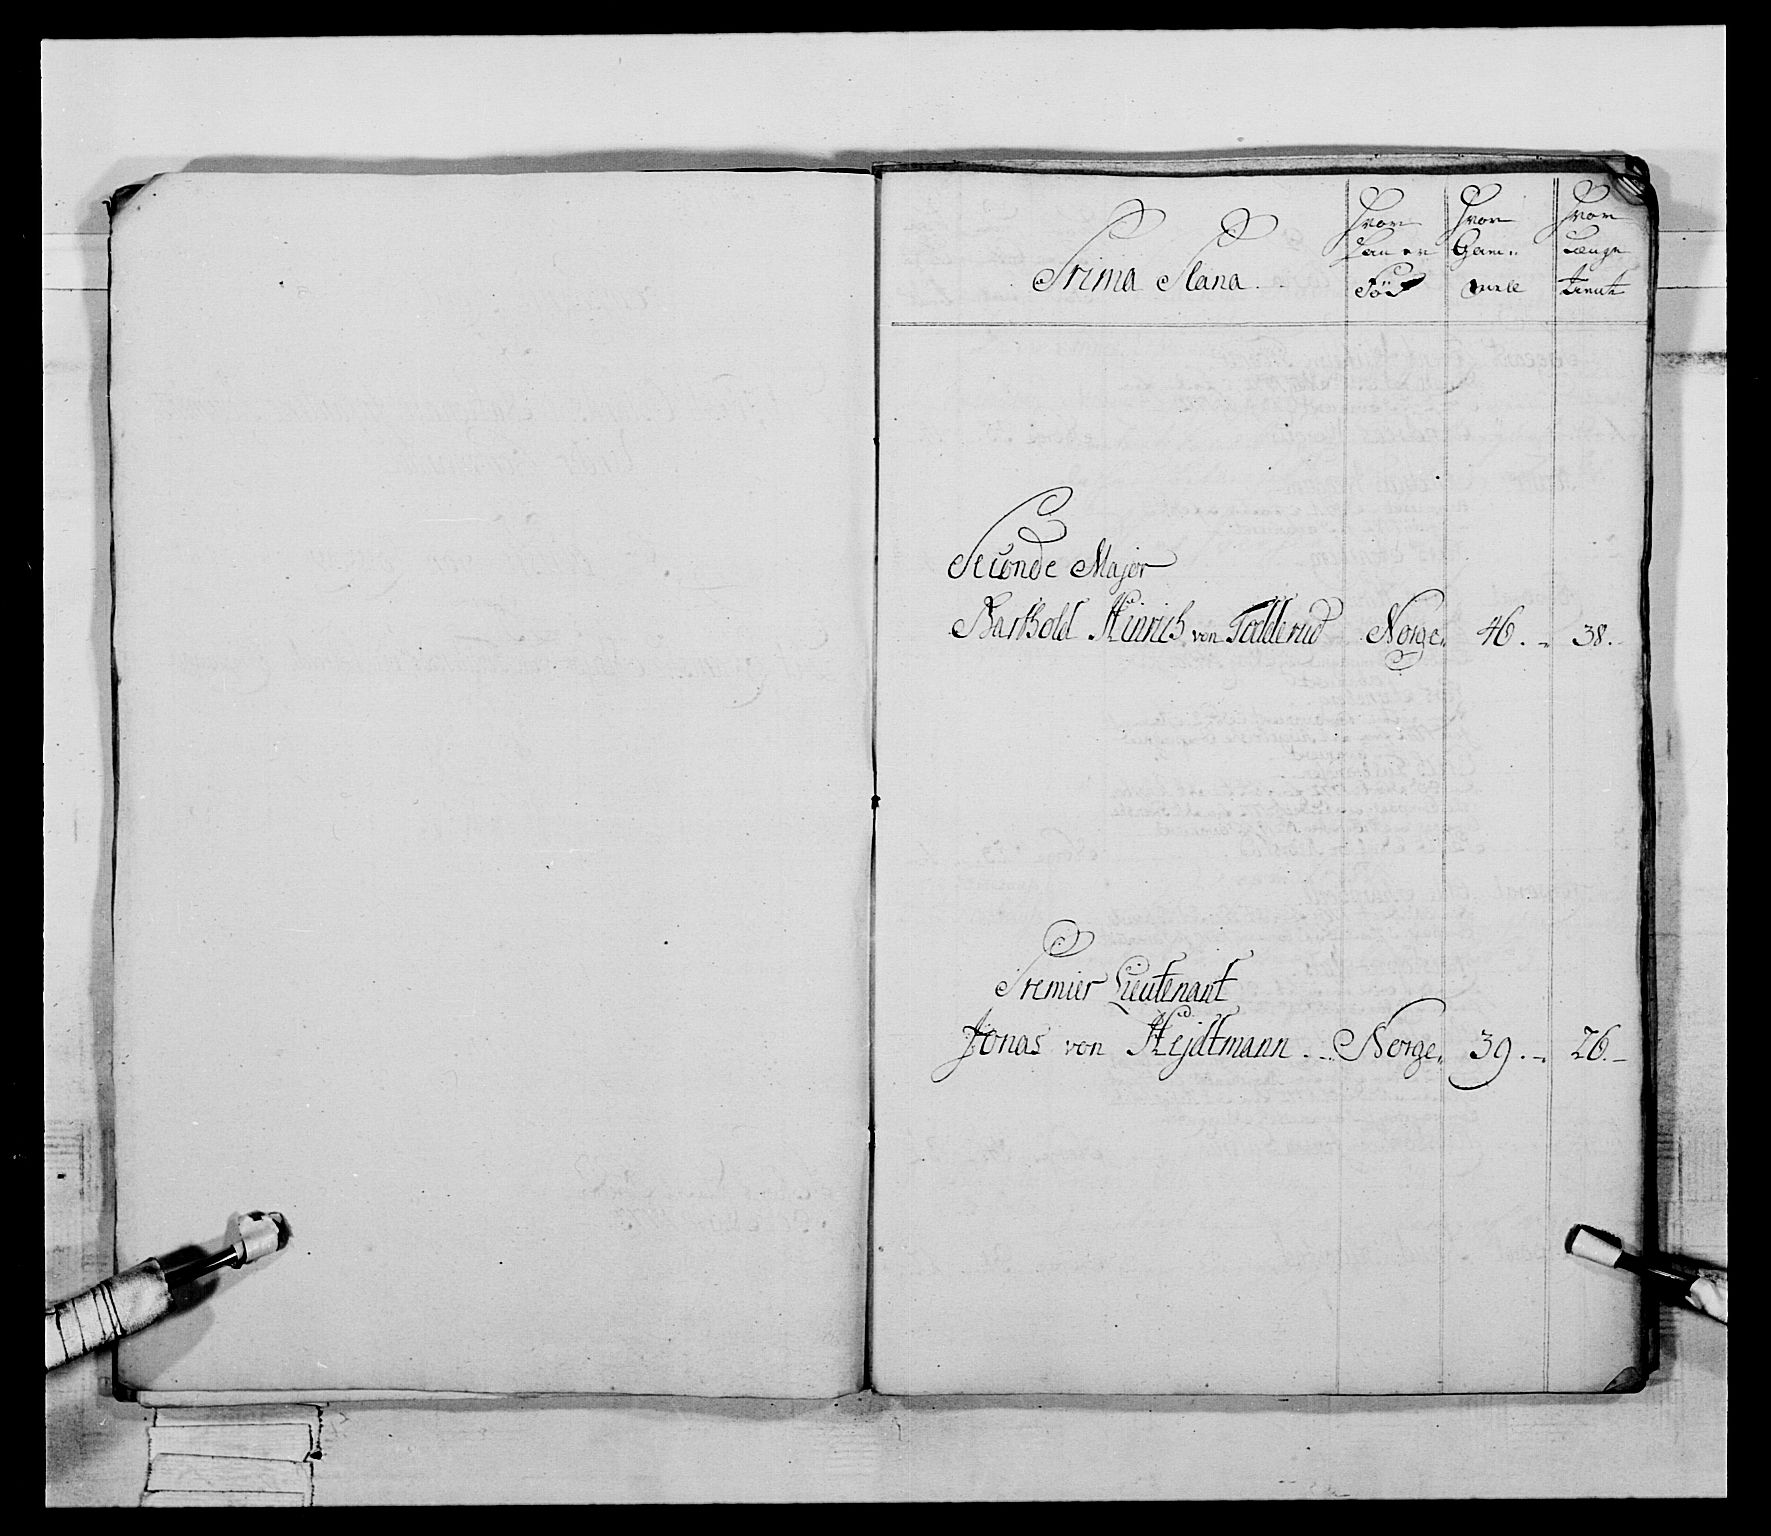 Prima Plana
Hvor
Han er
Föd
Hvor
Gam„
mell
Hvor
Længe
tient
Seconde Major
Barthold Hinrich von Todderud Norge. 46. 38.
Premier Lieutenant
Jonas von Hejdtmann Norge. 39. 26.